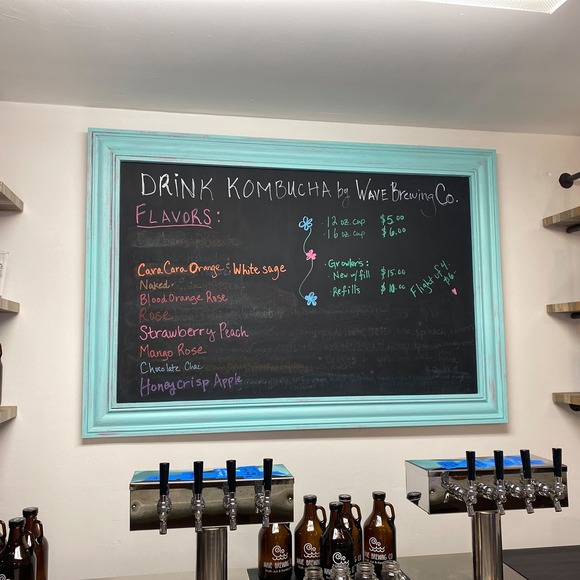 DRINK KOMBUCHA by WAVE Brewing Co.
FLAVORS:
Cara Cara Orange & White sage
Naked
Blood Orange Rose
Rose
Strawberry Peach
Mango Rose
Chocolate Chai
Honeycrisp Apple
12 oz. cup $5.00
16 oz. cup $6.00
Growlers:
New w/fill $15.00
Refills
Flight of 4.
WAVE BREWING CO
WAVE BREWING CO